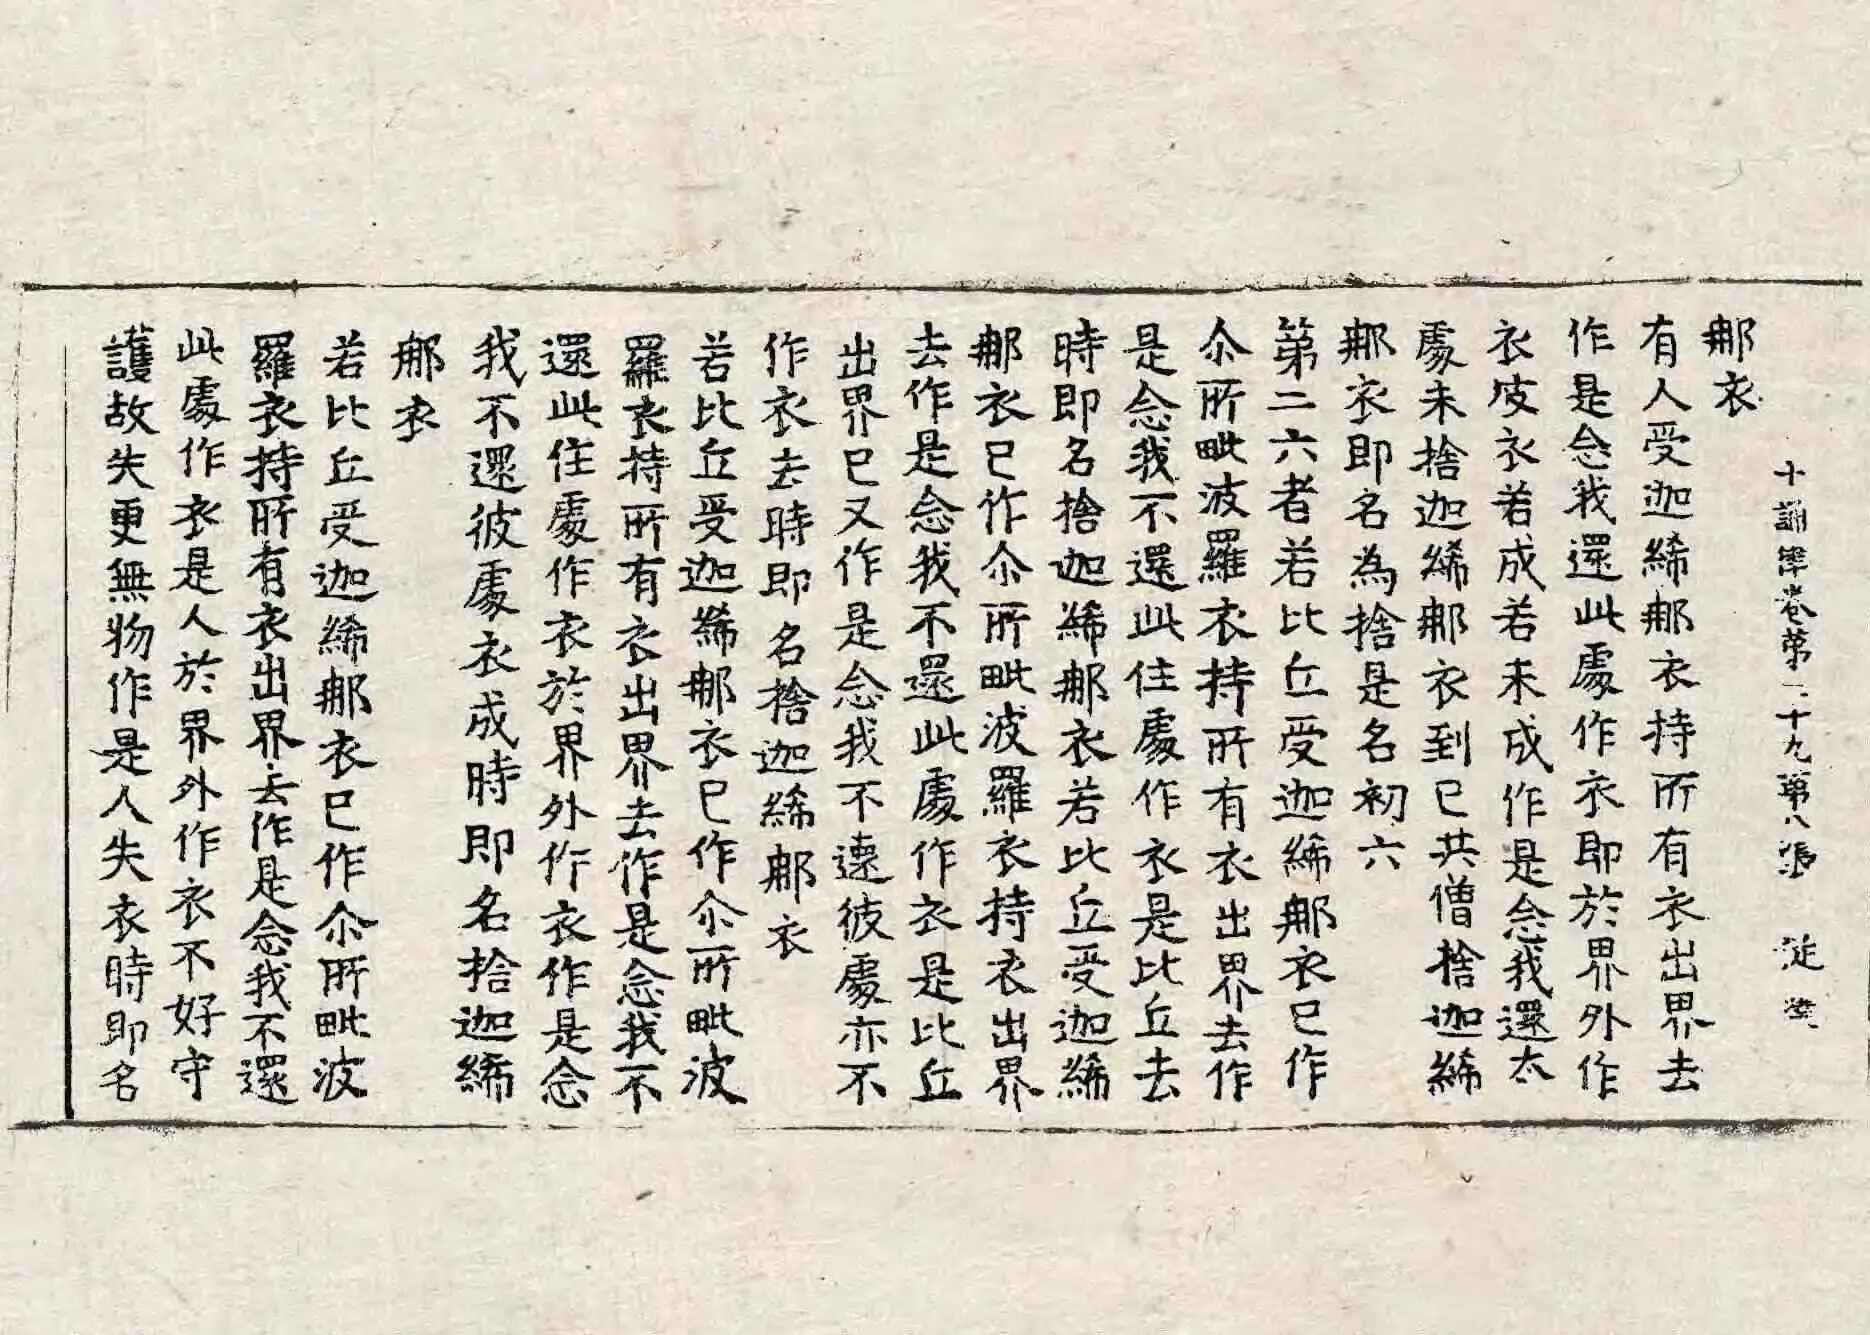 十誦律卷第二十九第八張 㳙 㸑
㖠衣
有人受迦絺㖠衣持所有衣出界去
作是念我還此處作衣即於界外作
衣皮衣若成若未成作是念我還太
處未捨迦絺㖠衣到已共僧捨迦絺
㖠衣即名為捨是名初六
第二六者若比丘受迦絺㖠衣已作
尒所毗波羅衣持所有衣出界去作
是念我不還此住處作衣是比丘去
時即名捨迦絺㖠衣若比丘受迦絺
㖠衣已作尒所毗波羅衣持衣出界
去作是念我不還此處作衣是比丘
出界已又作是念我不遠彼處亦不
作衣去時即名捨迦絺㖠衣
若比丘受迦絺㖠衣已作尒所毗波
羅衣持所有衣出界去作是念我不
還此住處作衣於界外作衣作是念
我不還彼處衣成時即名捨迦絺
㖠衣
若比丘受迦絺㖠衣已作尒所毗波
羅衣持所有衣出界去作是念我不還
此處作衣是人於界外作衣不好守
護故失更無物作是人失衣時即名